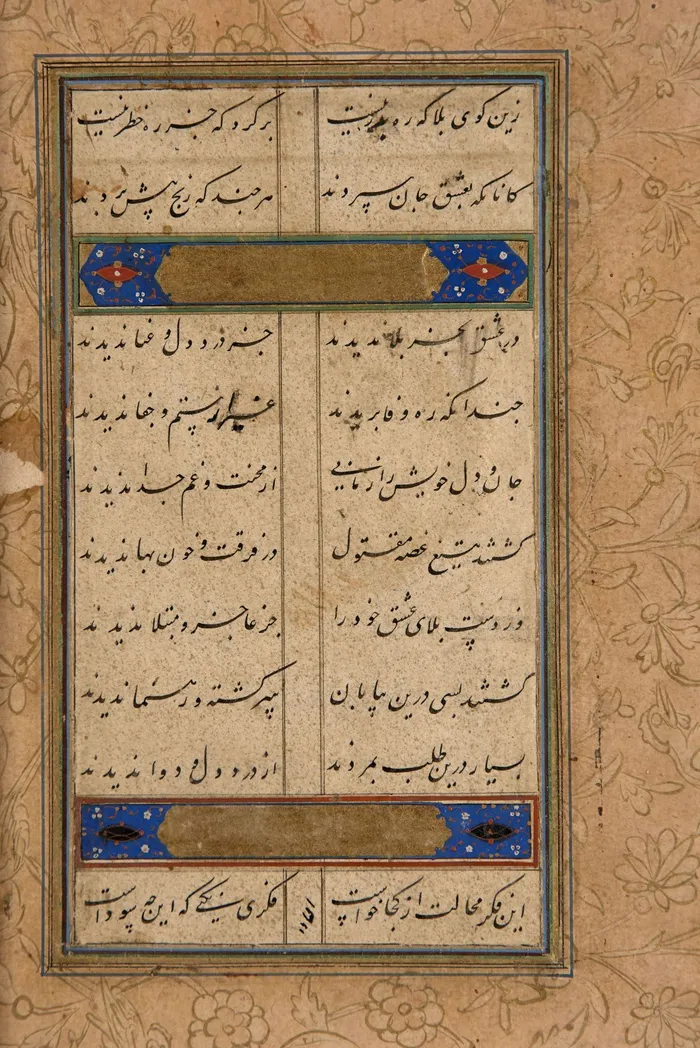 زین کوی بلا که ره بدر نیست برگرد که جز ره خطر نیست
کانانکه بعشق جان سپردند هرچند که رنج پیش بردند
در عشق بجز بلا ندیدند جز درد دل و عنا ندیدند
چندانکه ره وفا بریدند غیر از ستم و جفا ندیدند
جان و دل خویش را زمانی از محنت و غم جدا ندیدند
گشتند بتیغ غصه مقتول در فرقت و خون بها ندیدند
وز دست بلای عشق خود را جز عاجز و مبتلا ندیدند
گشتند بسی درین بیابان سرگشته و رهنما ندیدند
بسیار درین طلب بمردند از درد دل و دوا ندیدند
این فکر محالت از کجا خواست فکری نیکی که این چه سوداست